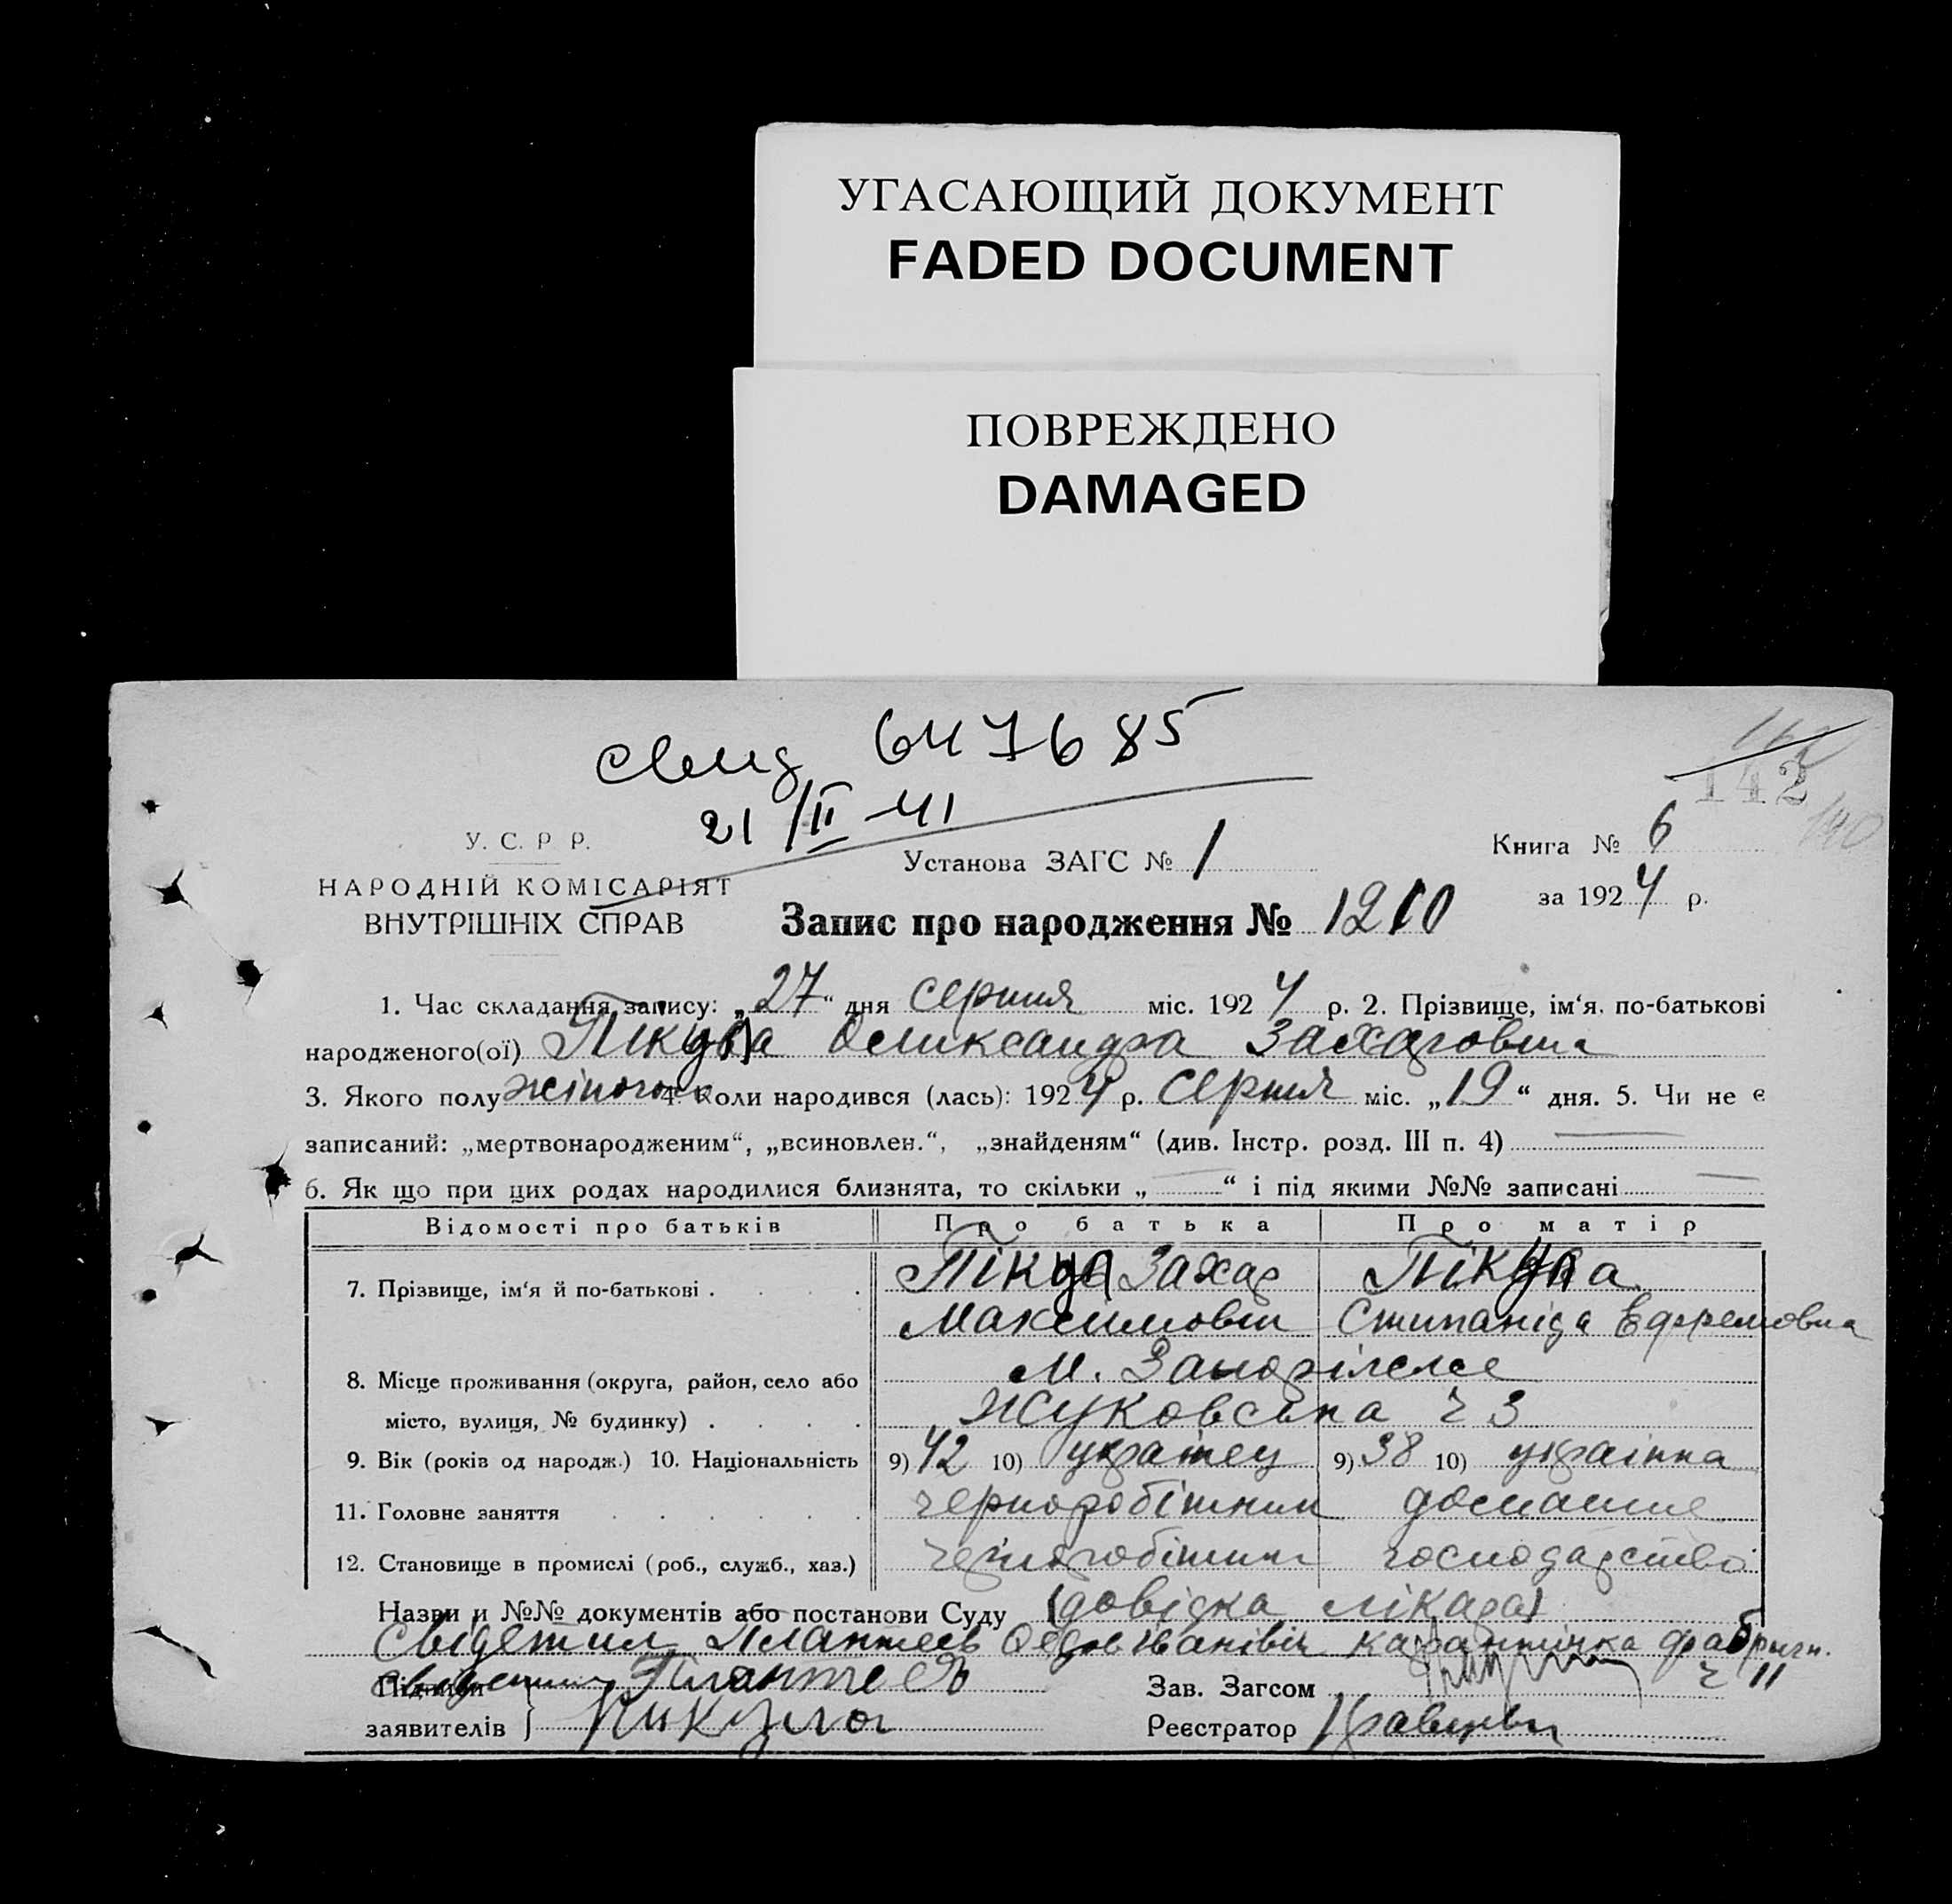 УГАСАЮЩИЙ ДОКУМЕНТ
FADED DOCUMENT
ПОВРЕЖДЕНО
DAMAGED
свид 647685
21/II-41
142
140
У. С. Р Р.
НАРОДНІЙ КОМІСАРІЯТ
ВНУТРІШНІХ СПРАВ
Установа ЗАГС № 1
Книга № 6
за 1924 р.
Запис про народження № 1210
1. Час складання запису: „27“ дня серпня міс. 1924 р. 2. Прізвище, ім‘я. по-батькові
народженого(ої) Олександра Захаровна
3. Якого полу жіного 4. Коли народився (лась): 1924 р. Серпня міс. „19“ дня. 5. Чи не є
записаний: „мертвонародженим“, „всиновлен.“, „знайденям“ (див. Інстр. розд. III п. 4)
6. Як що при цих родах народилися близнята, то скільки „ “ і під якими №№ записані
Відомості про батьків Про батька Про матір
7. Прізвище, ім‘я й по-батькові . . . . Захар
Максимович Степаніда Ефремовна
8. Місце проживання (округа, район, село або М. Запоріжже
місто, вулиця, № будинку) . . . . Жуковська ч 3
9. Вік (років од народж.) 10. Національність 9) 42 10) украінец 9) 38 10) украінка
11. Головне заняття . . . . . . чорноробітник домашне
12. Становище в промислі (роб., служб., хаз.) чорноробітник господарство
Назви и №№ документів або постанови Суду (довідка лікаря)
Свідетил Плантеев Федов Іванівіч Карантінка фабричн.
ч 11
Підписи Плантеев Зав. Загсом
заявителів } Реєстратор